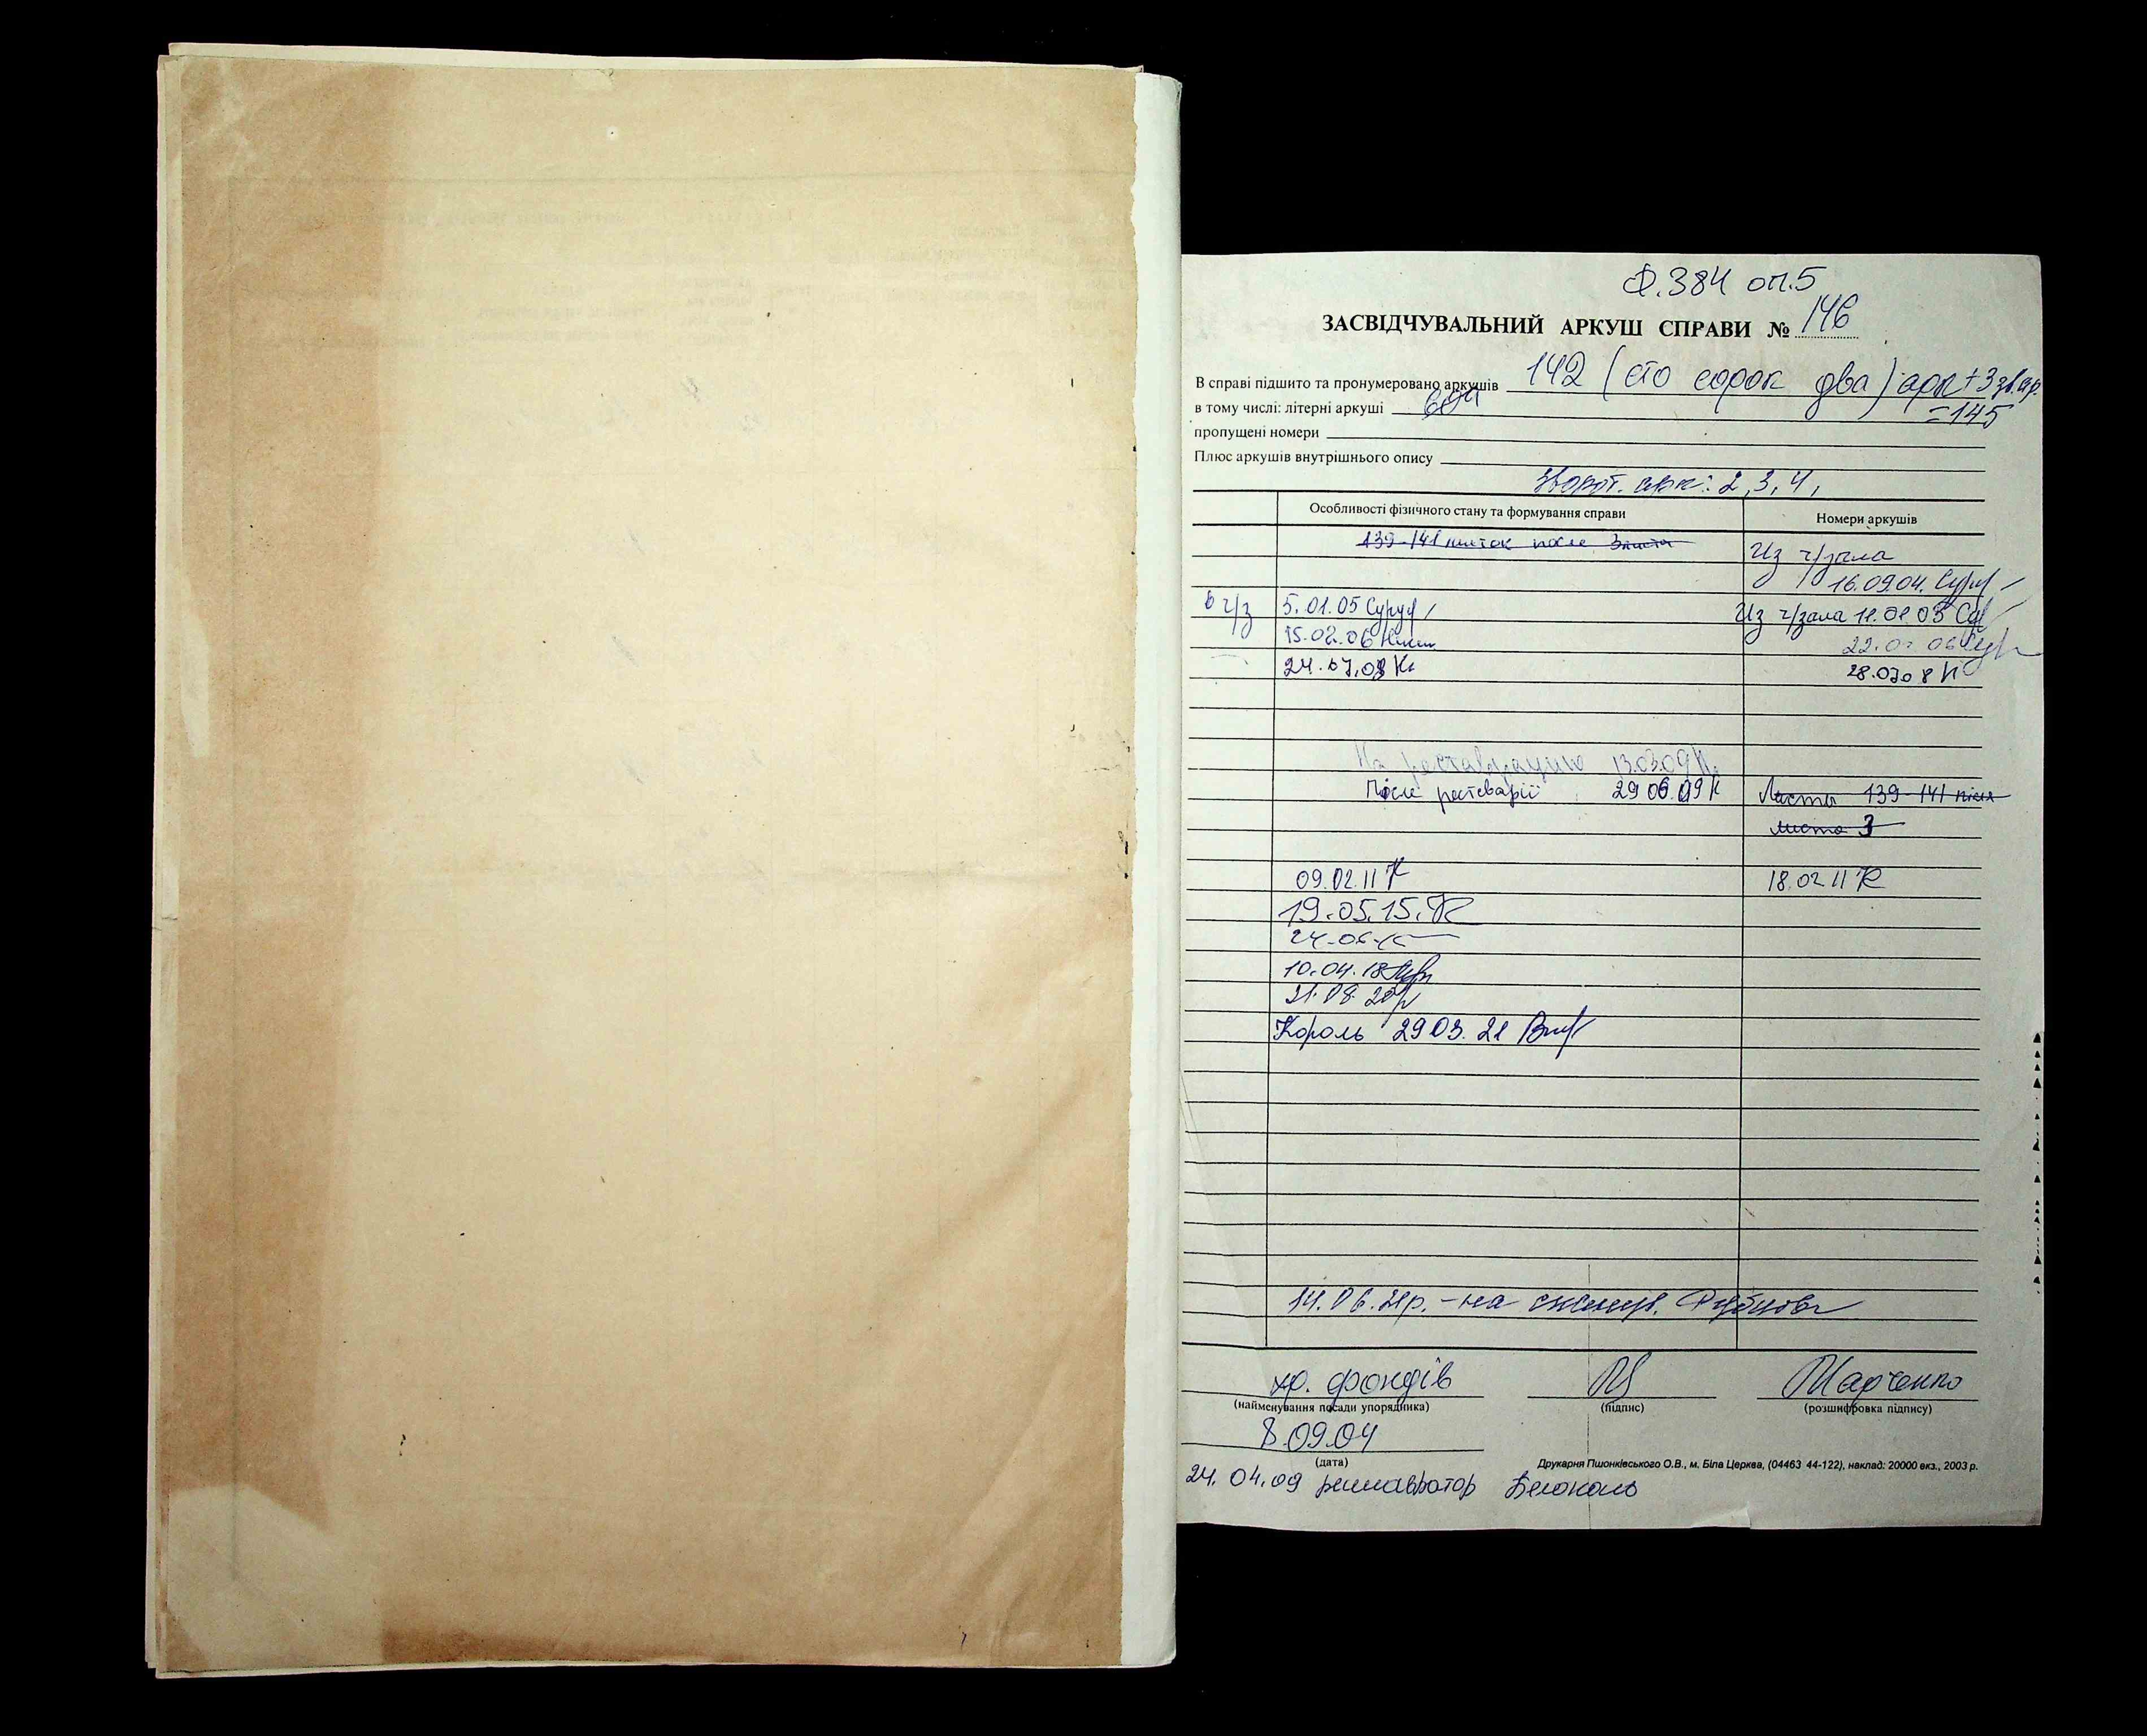 Ф.384 оп.5
ЗАСВІДЧУВАЛЬНИЙ АРКУШ СПРАВИ № 146
В справі підшито та пронумеровано аркушів 142 (сто сорок два) арк + 3 зв.ар.
в тому числі: літерні аркуші =145
пропущені номери
Плюс аркушів внутрішнього опису
Зворот. арк: 2, 3, 4,
Особливості фізичного стану та формування справи Номери аркушів
139-141 после Из ч/зала
16.09.04.
в ч/з 5.01.05 Из ч/зала
15.02.06
24.07.08 К
На реставрацию 13.03.09 К
Після 29 06.09 К Листы 139-141 після
листа 3
09.02.11 К 18.02 11 К
19.05.15.
10.04.18
21.08.20
Король 29 03. 21
14.06. - на
хр. фондів Марченко
(найменування посади упорядника) (підпис) (розшифровка підпису)
8.09.04
(дата)
Друкарня Пшонківського О.В., м. Біла Церква, (04463 44-122), наклад: 20000 екз., 2003 р.
24.04.09 реставратор